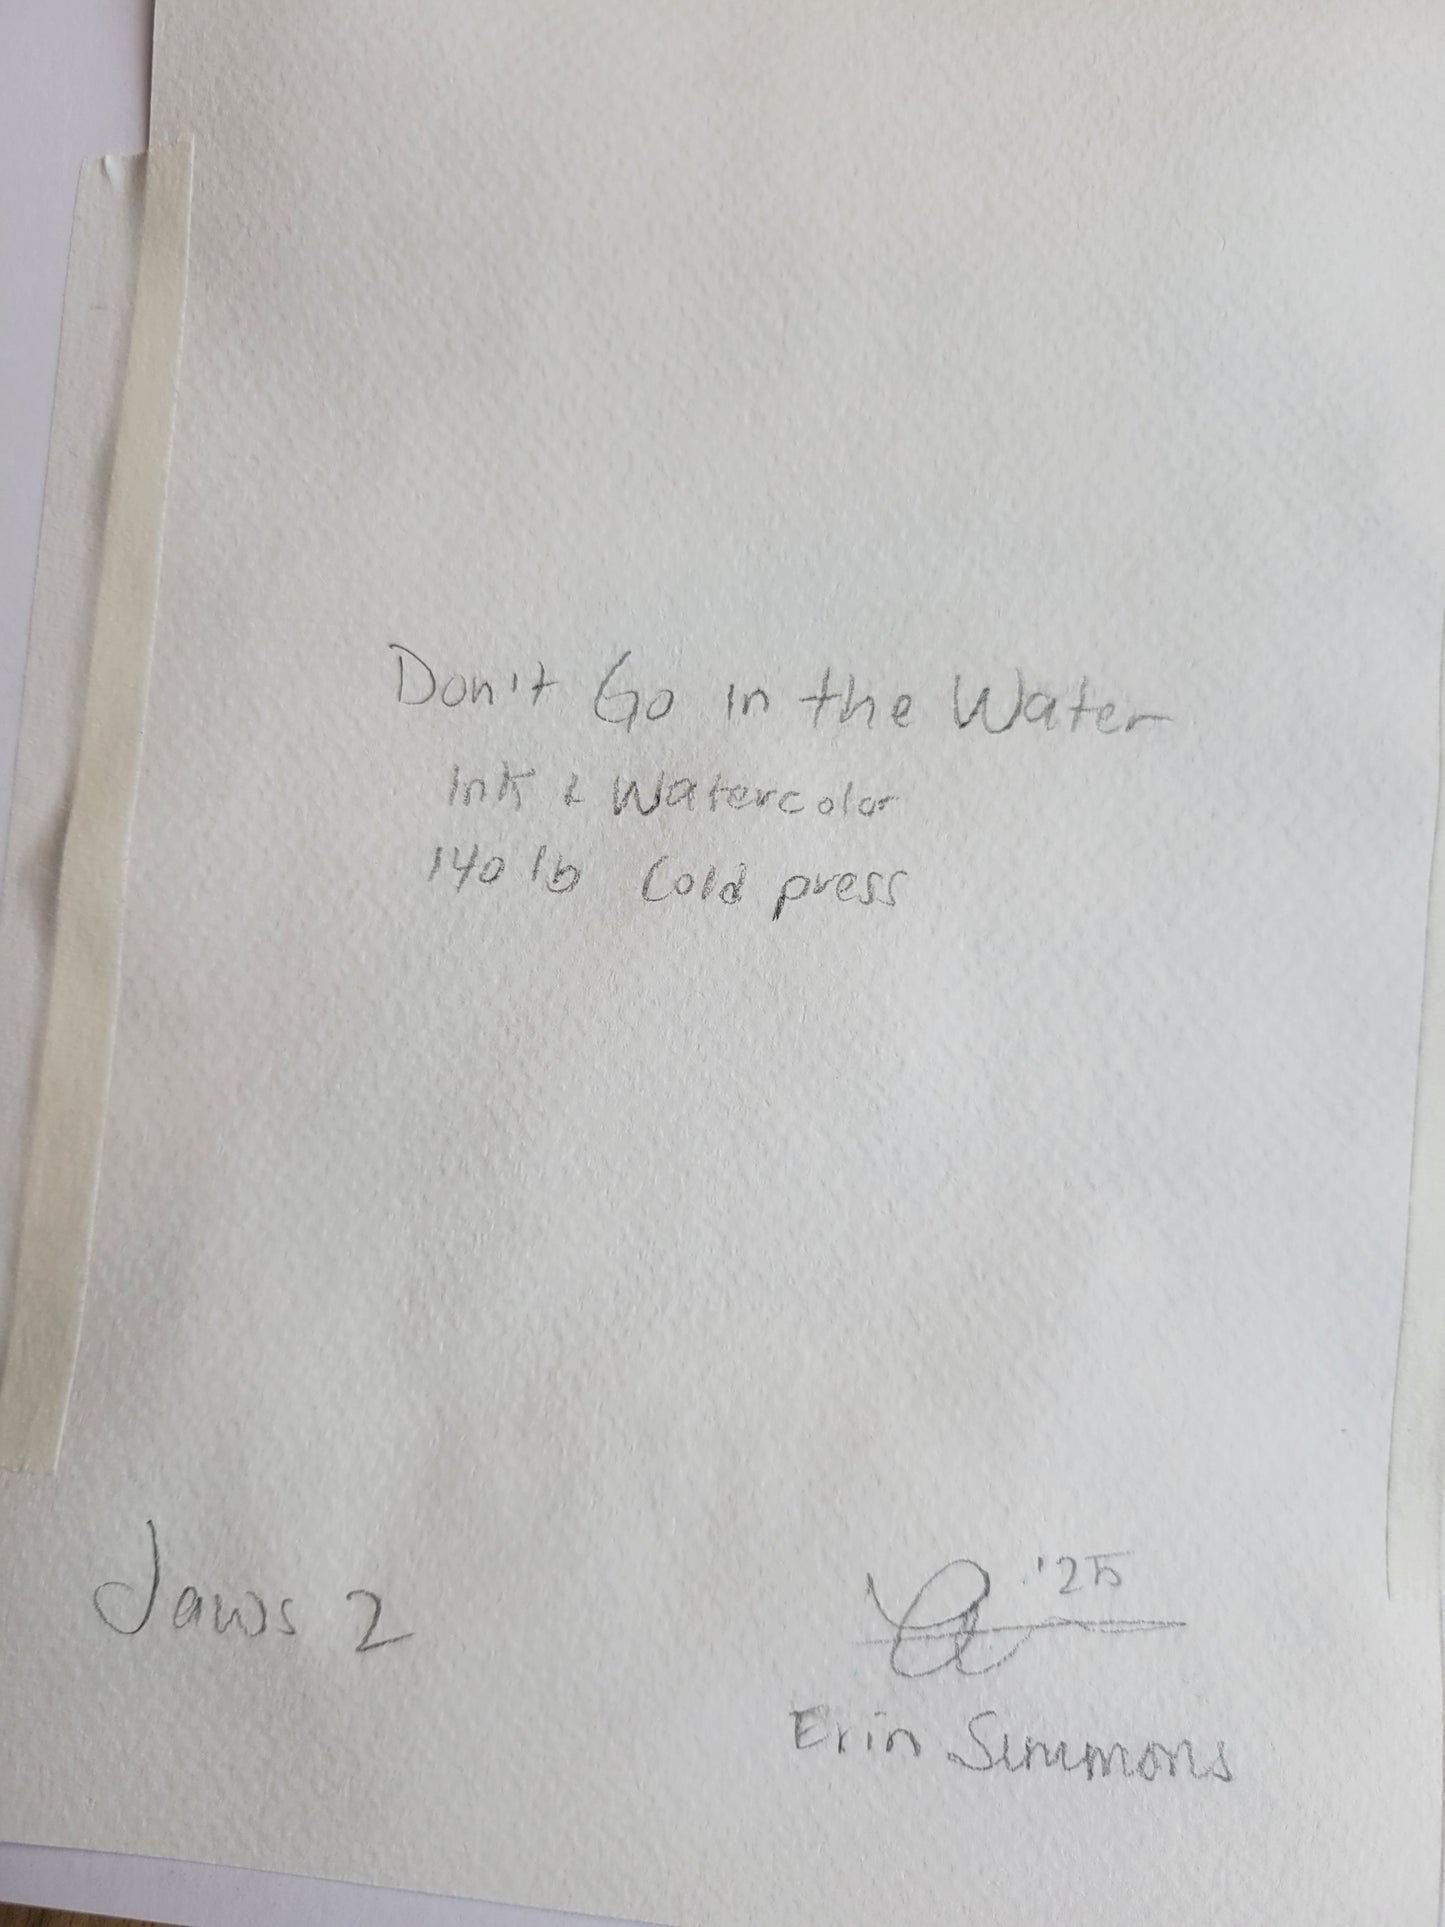 Don't Go in the Water
Ink & Watercolor
140 lb Cold press
Jaws 2
'25
Erin Simmons